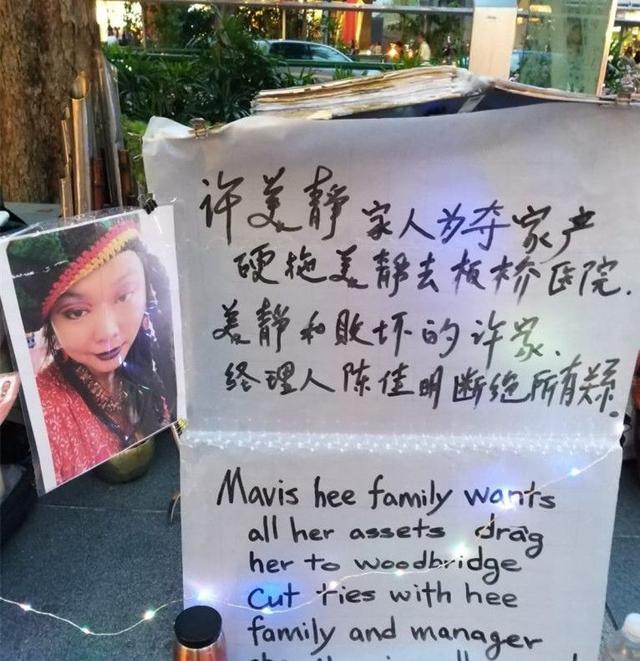 许美静家人为夺家产
硬拖美静去板桥医院.
美静和败坏的许家.
经理人陈佳明断绝所有关系.
Mavis hee family wants
all her assets drag
her to woodbridge
Cut ties with hee
family and manager